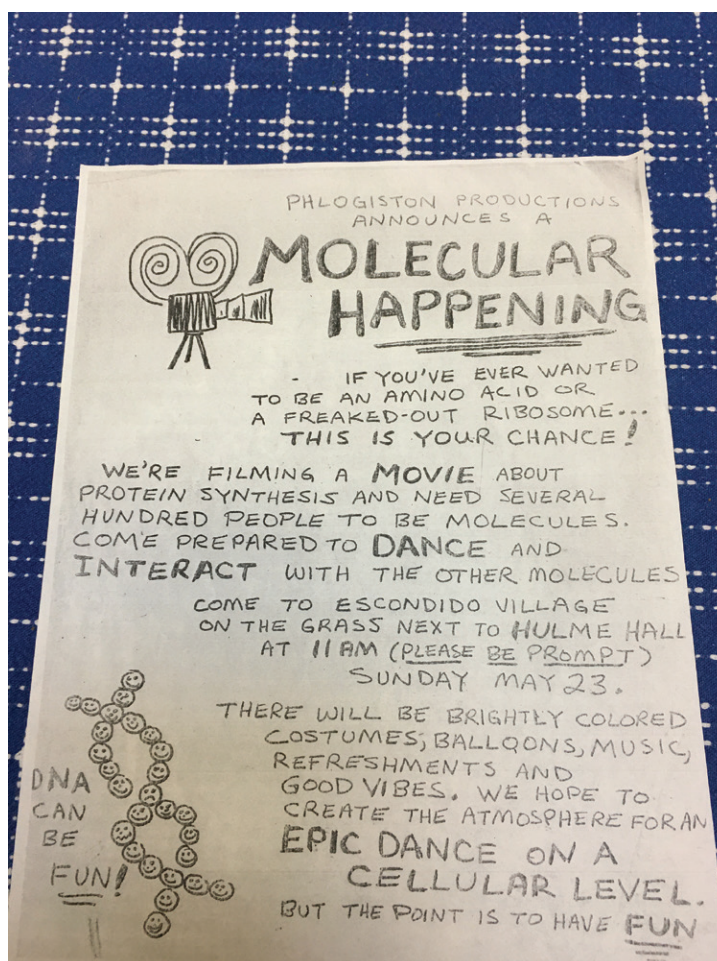 PHLOGISTON PRODUCTIONS
ANNOUNCES A
MOLECULAR
HAPPENING
- IF YOU'VE EVER WANTED
TO BE AN AMINO ACID OR
A FREAKED-OUT RIBOSOME...
THIS IS YOUR CHANCE!
WE'RE FILMING A MOVIE ABOUT
PROTEIN SYNTHESIS AND NEED SEVERAL
HUNDRED PEOPLE TO BE MOLECULES.
COME PREPARED TO DANCE AND
INTERACT WITH THE OTHER MOLECULES
COME TO ESCONDIDO VILLAGE
ON THE GRASS NEXT TO HULME HALL
AT 11 AM (PLEASE BE PROMPT)
SUNDAY MAY 23.
THERE WILL BE BRIGHTLY COLORED
COSTUMES, BALLOONS, MUSIC,
REFRESHMENTS AND
GOOD VIBES. WE HOPE TO
CREATE THE ATMOSPHERE FOR AN
EPIC DANCE ON A
CELLULAR LEVEL.
BUT THE POINT IS TO HAVE FUN
DNA
CAN
BE
FUN!